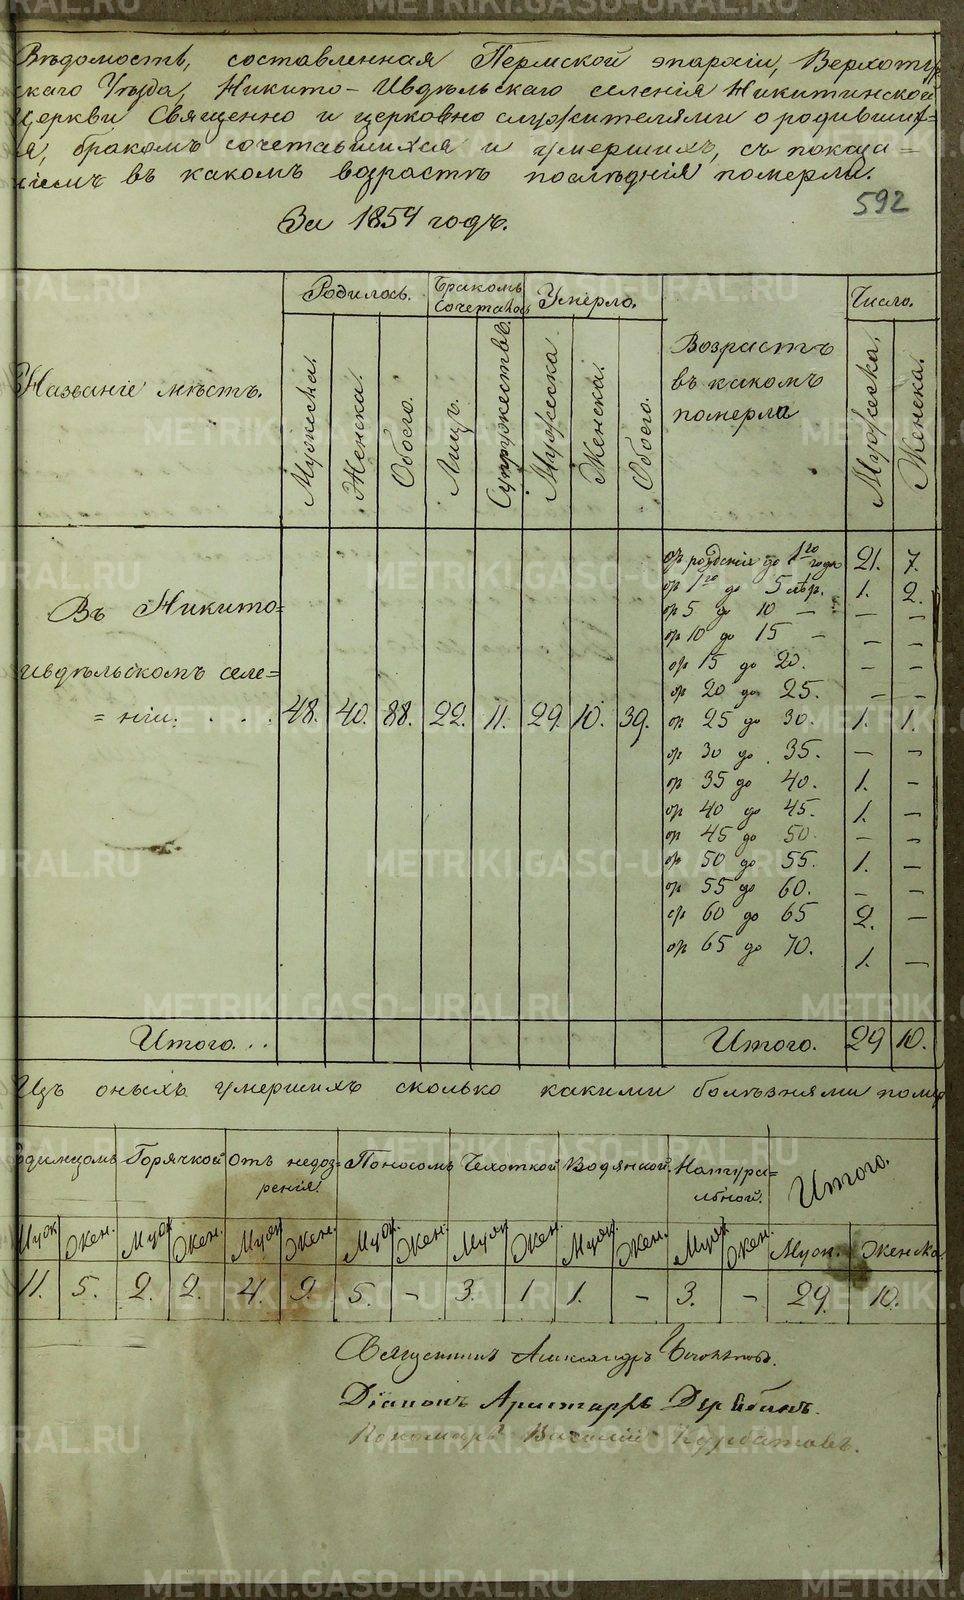 Вѣдомость, составленная Пермской епархіи, Верхотур
скаго Уѣзда, Никито-Ивдѣльскаго селенія Никитинской
Церкви Священно и церковно служителями о родивших=
ся, бракомъ сочетавшихся и умершихъ, съ показа=
ніемъ въ какомъ возрастѣ послѣднія померли.
592
За 1854 годъ.
Названіе мѣстъ.
Родилось.
Бракомъ Сочеталось
Умерло.
Возрастъ въ какомъ померла
Число.
Мужеска. Женска. Обоего. Лицъ. Супружествъ. Мужеска Женска. Обоего. Мужеска. Женска.
Въ Никито=
ивдѣльскомъ селе=
= ніи. . . . 48. 40. 88. 22. 11. 29. 10. 39.
отъ рожденія до 1го года 21. 7.
от 1го до 5 лѣт. 1. 2.
от 5 до 10 — — —
от 10 до 15 — — —
от 15 до 20. — —
от 20 до 25. — —
от 25 до 30. 1. 1.
от 30 до 35. — —
от 35 до 40. 1. —
от 40 до 45. 1. —
от 45 до 50. — —
от 50 до 55. 1. —
от 55 до 60. — —
от 60 до 65 2. —
от 65 до 70. 1. —
Итого. . . Итого. 29 10.
Изъ оныхъ умершихъ сколько какими болѣзнями помер
одимцомъ Горячкой Отъ недоз=рѣнія. Поносомъ Чехоткой Водянкой. Натура=льной. Итого.
Муж Жен. Муж Жен. Муж Жен. Муж. Жен. Муж Жен Муж Жен. Муж Жен. Муж. Женска
11. 5. 2. 2. 4. 2. 5. — 3. 1 1. — 3. — 29. 10.
Священникъ Александръ
Діаконъ Аристархъ Дерябинъ.
Пономарь Василій Курбатовъ.
METRIKI.GASO-URAL.RU